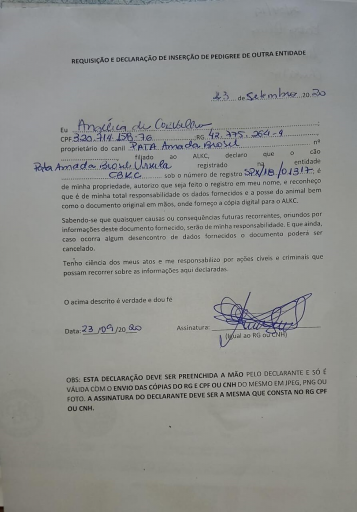 REQUISIÇÃO E DECLARAÇÃO DE INSERÇÃO DE PEDIGREE DE OUTRA ENTIDADE
23 de Setembro 2020
Eu Angélica de Carvalho
CPF 320.714.158-76 RG 42.775.264-9
proprietário do canil PATA Amada Brasil nº
filiado ao ALKC, declaro que o cão
Pata Amada Brasil Ursula registrado entidade
CBKC sob o número de registro SPX/18/01317, é
de minha propriedade, autorizo que seja feito o registro em meu nome, e reconheço
que é de minha total responsabilidade os dados fornecidos e a posse do animal bem
como o documento original em mãos, onde forneço a cópia digital para o ALKC.
Sabendo-se que quaisquer causas ou consequências futuras recorrentes, oriundos por
informações deste documento fornecido, serão de minha responsabilidade. E que ainda,
caso ocorra algum desencontro de dados fornecidos o documento poderá ser
cancelado.
Tenho ciência dos meus atos e me responsabilizo por ações cíveis e criminais que
possam recorrer sobre as informações aqui declaradas.
O acima descrito é verdade e dou fé
Data: 23/09/2020 Assinatura:
(Igual ao RG ou CNH)
OBS: ESTA DECLARAÇÃO DEVE SER PREENCHIDA A MÃO PELO DECLARANTE E SÓ É
VÁLIDA COM O ENVIO DAS CÓPIAS DO RG E CPF OU CNH DO MESMO EM JPEG, PNG OU
FOTO. A ASSINATURA DO DECLARANTE DEVE SER A MESMA QUE CONSTA NO RG CPF
OU CNH.